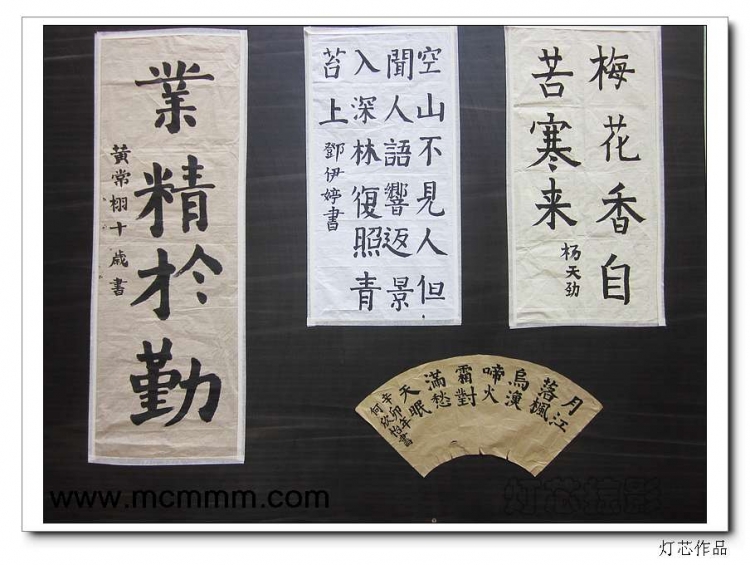 業精於勤
黄常栩十歲書
空山不見人但
聞人語響返景
入深林復照青
苔上
鄧伊婷書
梅花香自
苦寒来
杨天劲
月江
落楓
烏漁
啼火
霜對
滿愁
天眠
辛卯年書
何欣怡
www.mcmmm.com
灯芯摄影
灯芯作品